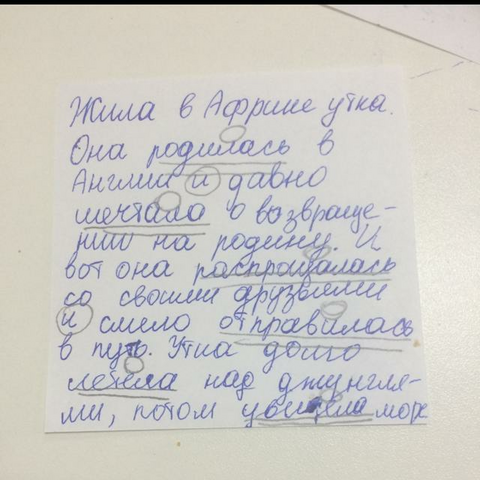 Жила в Африке утка.
Она родилась в
Англии и давно
мечтала о возвраще-
нии на родину. И
вот она распрощалась
со своими друзьями
и смело отправилась
в путь. Утка долго
летела над джунгля-
ми, потом увидела море